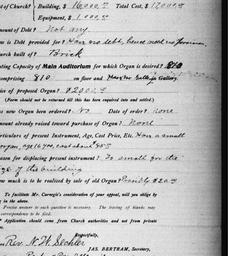 of Church? Building, $ 16,000.00 Total Cost, $
Equipment, $ 1,000.00
mount of Debt? Not any
is Debt provided for? Have no debt, hence need no
urch built of? Brick
ating Capacity of Main Auditorium for which Organ is desired?
omprising 810 on floor and Gallery
ice of proposed Organ? $2000.00
(Form should not be returned till this has been required into and settled.)
new Organ been ordered? No Date of order? none
mount already raised toward purchase of Organ? None
rticulars of present Instrument, Age, Cost Price, Etc. Have a small
organ, age 16 yrs, cost about
eason for displacing present instrument? To small for the
of the building
ow much is to be realized by sale of old Organ? Possibly $200.00
To facilitate Mr. Carnegie's consideration of your appeal, will you oblige by
Precise answer to each question is necessary. The
correspondence to be filed.
Application should come from Church authorities and not from private
Respectfully,
Rev. N. W. Sechler
JAS. BERTRAM, Secretary,